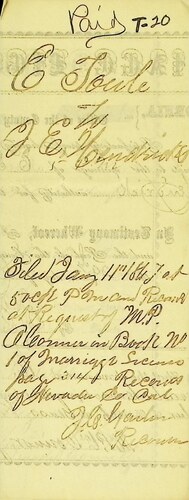 Paid T-20
E Toule
To
J E Hendricks
Filed Jany 11th 1867 at
5 oclk P.M and Record
at Request of M.P.
OConnor in Book No
1 of Marriage Licenses
Page 314 Records
of Nevada Co Cal
Recorder
In Testimony Whereof,